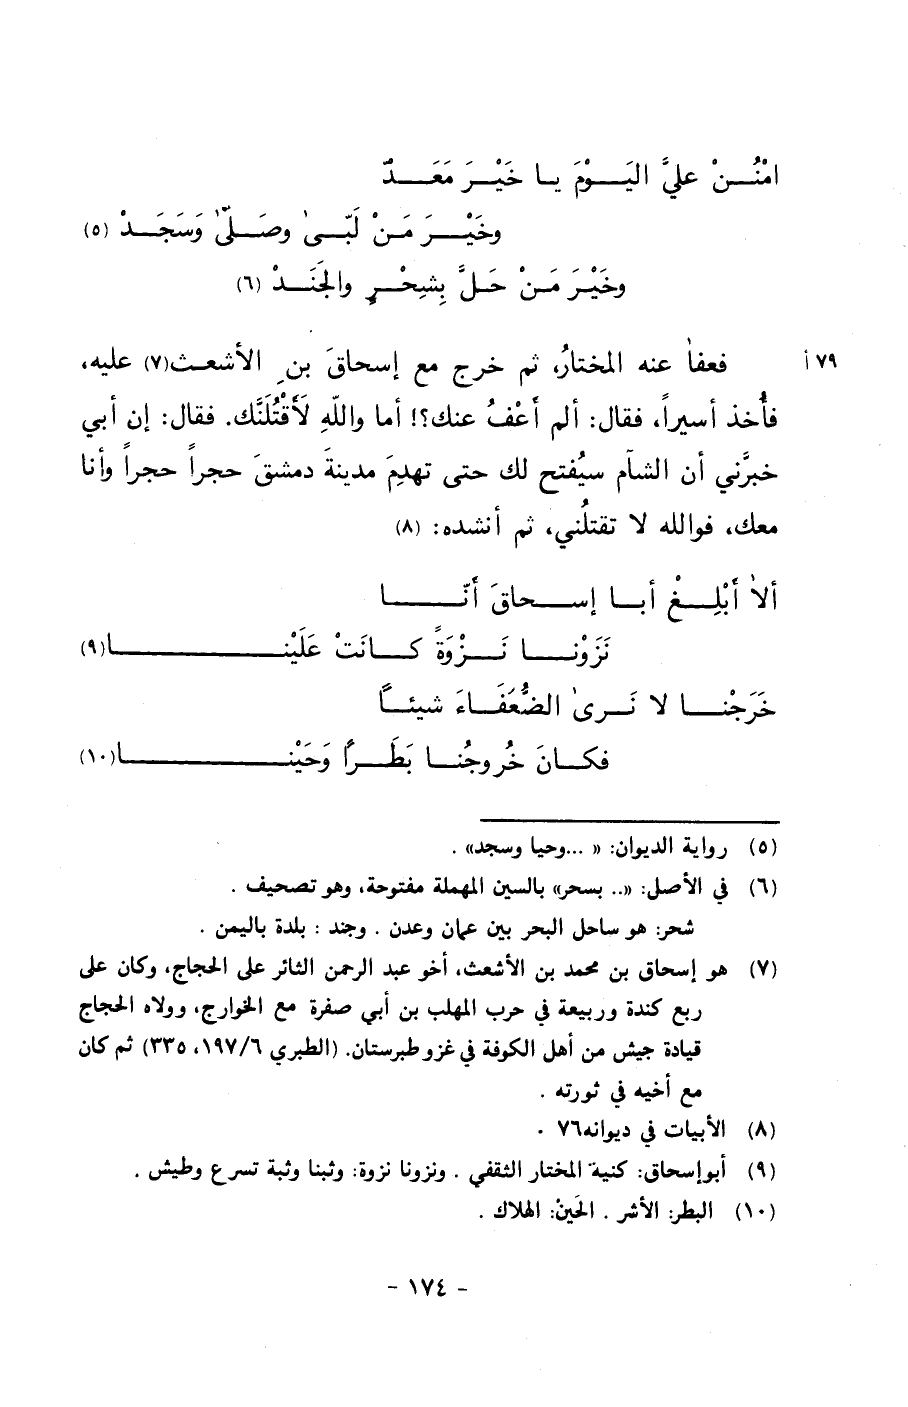 امْنُـنْ عليَّ اليَـوْمَ يـا خَيْـرَ مَعَـدّْ
وخَيْـرَ مَـنْ لَبّـىٰ وصَـلّىٰ وَسَجَـدْ (٥)
وخَيْرَ مَـنْ حَـلَّ بِشِحْـرٍ والجَنَـدْ (٦)
٧٩ أ فعفا عنه المختارُ، ثم خرج مع إسحاقَ بنِ الأشعث(٧) عليه،
فأُخذ أسيراً، فقال: ألم أَعْفُ عنك؟! أما واللّهِ لَأَقْتُلَنَّك. فقال: إن أبي
خبَّرني أن الشآم سيُفتح لك حتى تهدِمَ مدينةَ دمشقَ حجراً حجراً وأنا
معك، فوالله لا تقتلُني، ثم أنشده: (٨)
ألا أَبْلِـغْ أبـا إسـحاقَ أَنّـا
نَزَوْنـا نَـزْوَةً كـانَتْ عَلَيْنـا(٩)
خَرَجْنـا لا نَـرىٰ الضُّعَفـاءَ شيئـاً
فكـانَ خُروجُنـا بَطَـراً وَحَيْنـا(١٠)
(٥) رواية الديوان: « ...وحيا وسجد» .
(٦) في الأصل: «.. بسحر» بالسين المهملة مفتوحة، وهو تصحيف .
شحر: هو ساحل البحر بين عمان وعدن . وجند : بلدة باليمن .
(٧) هو إسحاق بن محمد بن الأشعث، أخو عبد الرحمن الثائر على الحجاج، وكان على
ربع كندة وربيعة في حرب المهلب بن أبي صفرة مع الخوارج، وولاه الحجاج
قيادة جيش من أهل الكوفة في غزو طبرستان. (الطبري ١٩٧/٦، ٣٣٥) ثم كان
مع أخيه في ثورته .
(٨) الأبيات في ديوانه٧٦ .
(٩) أبوإسحاق: كنية المختار الثقفي . ونزونا نزوة: وثبنا وثبة تسرع وطيش .
(١٠) البطر: الأشر . الحَينْ: الهلاك .
- ١٧٤ -